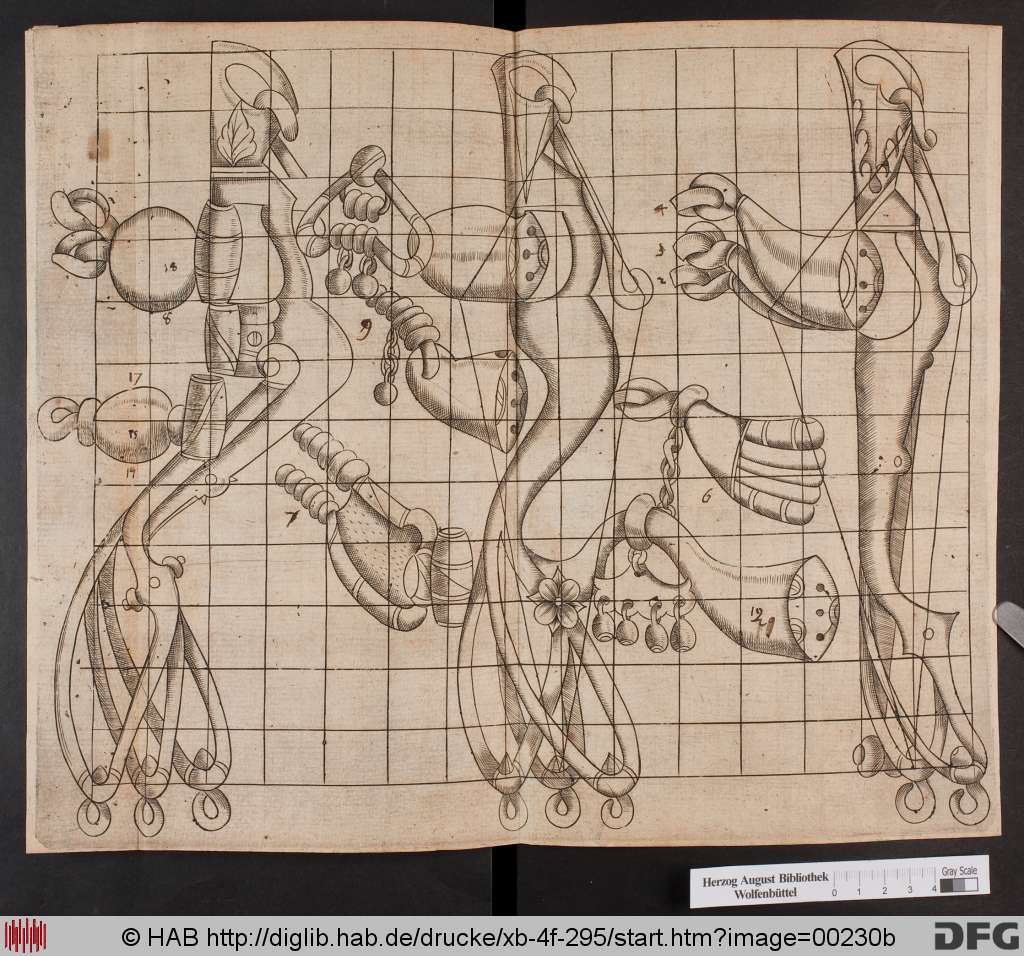 4
3
18
2
8
9
17
15
19
7
6
19
Herzog August Bibliothek
Wolfenbüttel
0 1 2 3 4
Gray Scale
© HAB http://diglib.hab.de/drucke/xb-4f-295/start.htm?image=00230b
DFG